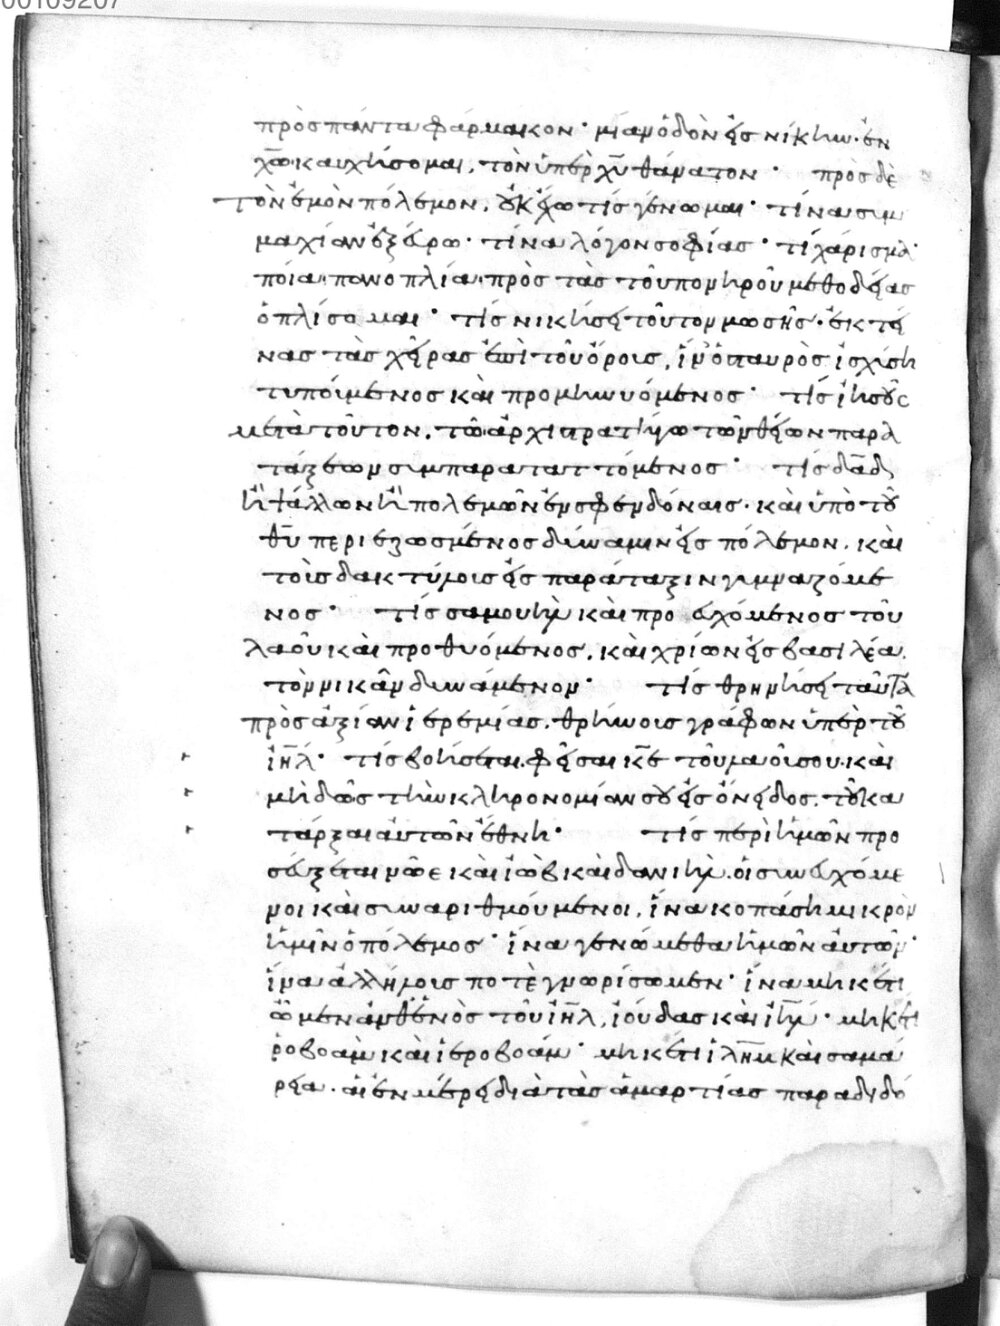 00109207
πρὸς πάντα φάρμακον· μίαν ὁδὸν εἰς νίκην· ἐν
χῶ καυχήσομαι, τὸν ὑπὲρ χῦ θάνατον· πρὸς δὲ
τὸν ἐμὸν πόλεμον, οὐκ ἔχω τίς γένωμαι· τίνα συμ
μαχίαν ἐξεύρω· τίνα λόγον σοφίας· τί χάρισμα·
ποία πανοπλία πρὸς τὰς τοῦ πονηροῦ μεθοδείας
ὁπλίσομαι· τίς νικήσει τοῦτον μωσῆς· ἐκτεί
νας τὰς χεῖρας ἐπὶ τοῦ ὄρους, ἵν' ὁ σταυρὸς ἰσχύση
τυπούμενος καὶ προμηνυόμενος· τίς ἰησοῦς
μετὰ τοῦτον, τῶ ἀρχιστρατήγω τῶν θείων παρα
τάξεων συμπαραταττόμενος· τίς δᾱδ
ἢ ψάλλων ἢ πολεμῶν ἐν σφενδόναις· καὶ ὑπὸ τοῦ
θῦ περιεζωσμένος δύναμιν εἰς πόλεμον, καὶ
τοῖς δακτύλοις εἰς παράταξιν γυμναζόμε
νος· τίς σαμουὴλ καὶ προευχόμενος τοῦ
λαοῦ καὶ προθυόμενος, καὶ χρίων εἰς βασιλέα,
τὸν νικᾶν δυνάμενον· τίς θρηνήσει ταῦτα
πρὸς ἀξίαν ἱερεμίας, θρήνοις γράφων ὑπὲρ τοῦ
ἰηλ· τίς βοήσεται, φεῖσαι κε τοῦ λαοῦ σου· καὶ
μὴ δῶς τὴν κληρονομίαν σου εἰς ὄνειδος, τοῦ κα
τάρξαι αὐτῶν ἔθνη· τίς περὶ ἡμῶν προ
σεύξεται νῶε καὶ ἰὼβ καὶ δανιὴλ οἱ συνευχόμε
νοι καὶ συναριθμούμενοι, ἵνα κοπάση μικρὸν
ἡμῖν ὁ πόλεμος· ἵνα γενώμεθα ἡμῶν αὐτῶν·
ἵνα ἀλλήλους ποτὲ γνωρίσωμεν· ἵνα μηκέτι
ὦμεν ἀνθ' ἑνὸς τοῦ ἰηλ, ἰούδας καὶ ἰηλ· μηκέτι
ῥοβοὰμ καὶ ἱεροβοάμ· μηκέτι ἱλημ καὶ σαμά
ρεια· αἱ ἐν μέρει διὰ τὰς ἁμαρτίας παραδιδό